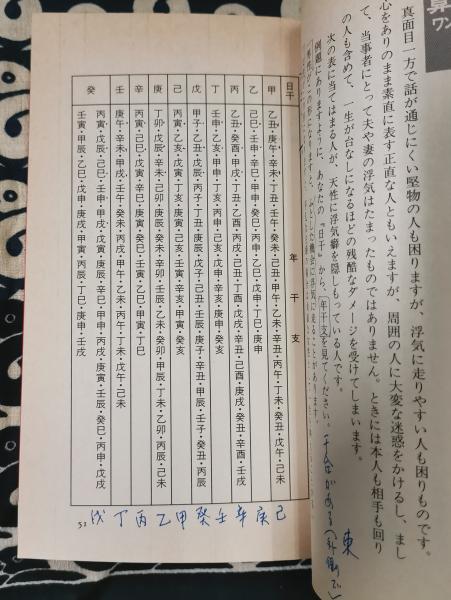 算
ワン
真面目一方で話が通じにくい堅物の人も困りますが、浮気に走りやすい人も困りものです。
心をありのまま素直に表す正直な人ともいえますが、周囲の人に大変な迷惑をかけるし、まし
て、当事者にとって夫や妻の浮気はたまったものではありません。ときには本人も相手も回り
の人も含めて、一生が台なしになるほどの残酷なダメージを受けてしまいます。
次の表に当てはまる人が、天性に浮気癖を隠しもっている人です。
例題にありますように、あなたの『日干』から、年干支を見てください。
干合がある
東
日干 年干支
甲 乙丑・庚午・辛未・丁丑・壬午・癸未・己丑・甲午・乙未・辛丑・丙午・丁未・癸丑・戊午・己未
乙 己巳・壬申・辛巳・甲申・癸巳・丙申・乙巳・戊申・丁巳・庚申
丙 乙丑・癸酉・甲戌・丁丑・乙酉・丙戌・己丑・丁酉・戊戌・辛丑・己酉・庚戌・癸丑・辛酉・壬戌
丁 壬申・乙亥・甲申・丁亥・丙申・己亥・戊申・辛亥・庚申・癸亥
戊 甲子・乙丑・戊辰・丙子・丁丑・庚辰・戊子・己丑・壬辰・庚子・辛丑・甲辰・壬子・癸丑・丙辰
己 丙寅・乙亥・戊寅・丁亥・庚寅・己亥・壬寅・辛亥・甲寅・癸亥
庚 丁卯・戊辰・辛未・己卯・庚辰・癸未・辛卯・壬辰・乙未・癸卯・甲辰・丁未・乙卯・丙辰・己未
辛 丙寅・己巳・戊寅・辛巳・庚寅・癸巳・壬寅・乙巳・甲寅・丁巳
壬 庚午・辛未・甲戌・壬午・癸未・丙戌・甲午・乙未・丙午・丁未・戊午・己未
癸 丙寅・戊辰・己巳・壬申・甲戌・戊寅・庚辰・辛巳・甲申・丙戌・庚寅・壬辰・癸巳・丙申・戊戌
壬寅・甲辰・乙巳・戊申・庚戌・甲寅・丙辰・丁巳・庚申・壬戌
己 庚 辛 壬 癸 甲 乙 丙 丁 戊